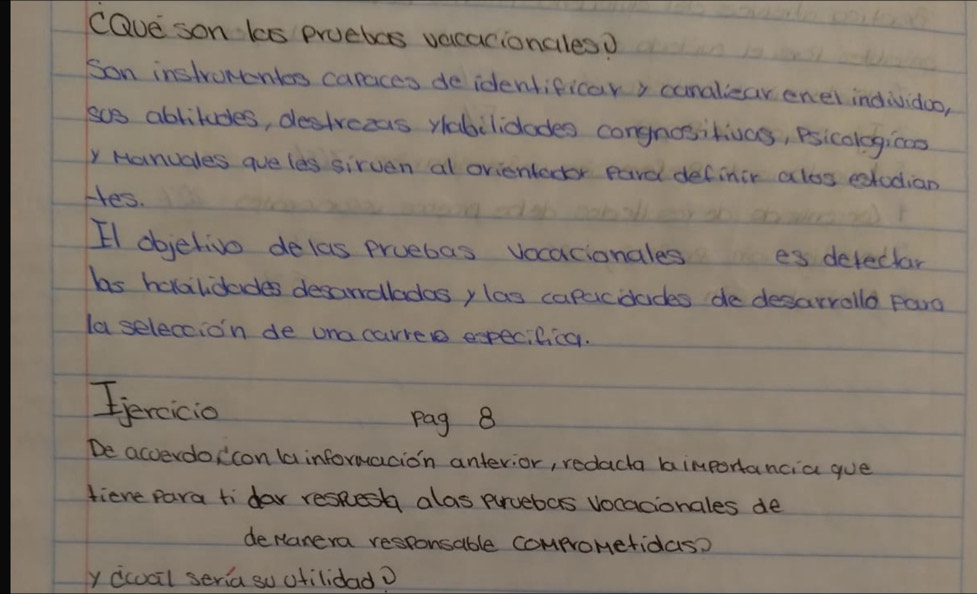 ¿Qué son las pruebas vacacionales?
Son instrumentos capaces de identificar y canalizar en el individuo,
sus abtitudes, destrezas y labilidades congnositivas, Psicologicas
y Manuales que les sirven al orientador para definir a los estudian
tes.
El objetivo de las pruebas vocacionales es detectar
las habilidades desarrolladas y las capacidades de desarrollo para
la selección de una carrera especifica.
Ejercicio pag 8
De acuerdo con la información anterior, redacta la importancia que
tiene para ti dar respuesta a las pruebas vocacionales de
de manera responsable comprometidas?
y ¿cuál sería su utilidad?